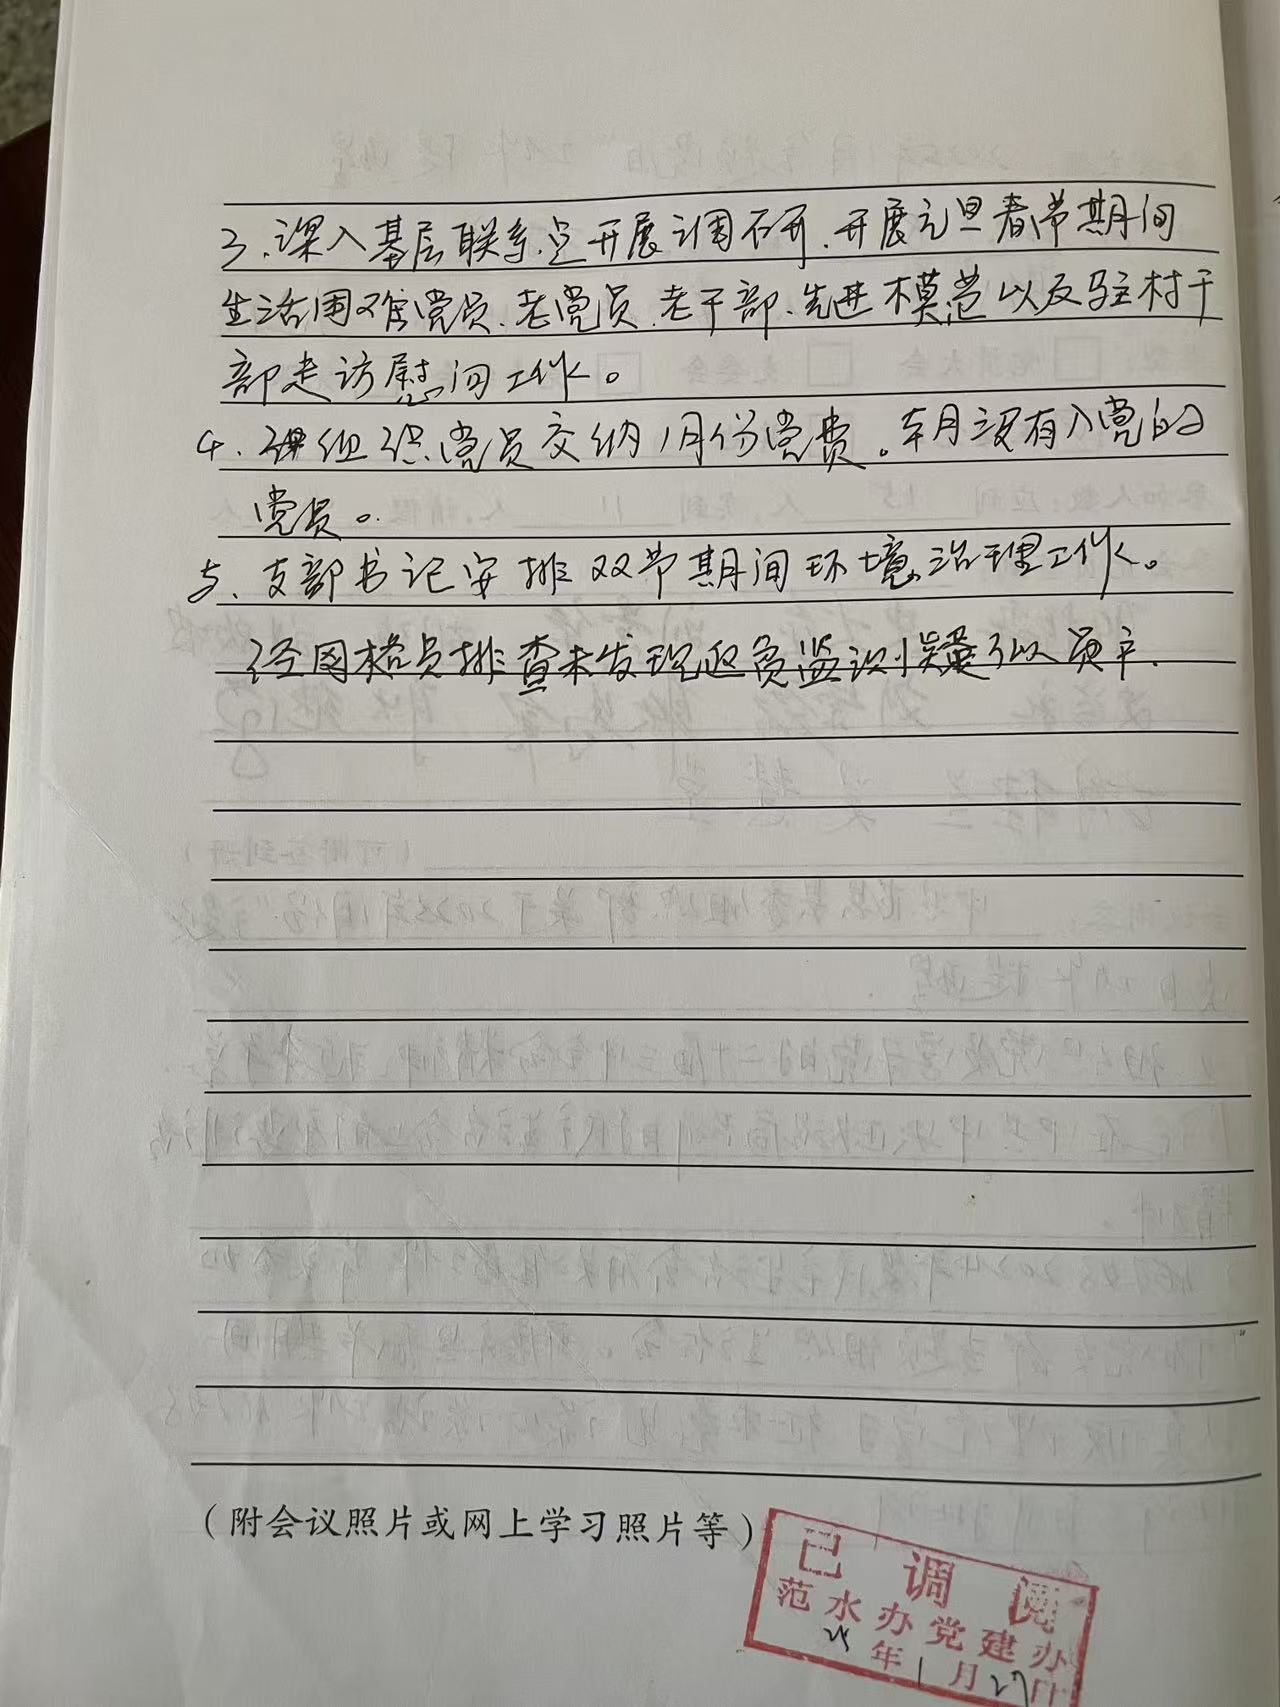 3、深入基层联系点开展调研、开展元旦春节期间
生活困难党员、老党员、老干部、先进模范以及驻村干
部走访慰问工作。
4、组织党员交纳1月份党费。本月没有入党的
党员。
5、支部书记安排双节期间环境治理工作。
经网格员排查未发现
（附会议照片或网上学习照片等）
已调阅
范水办党建办
25年1月27日